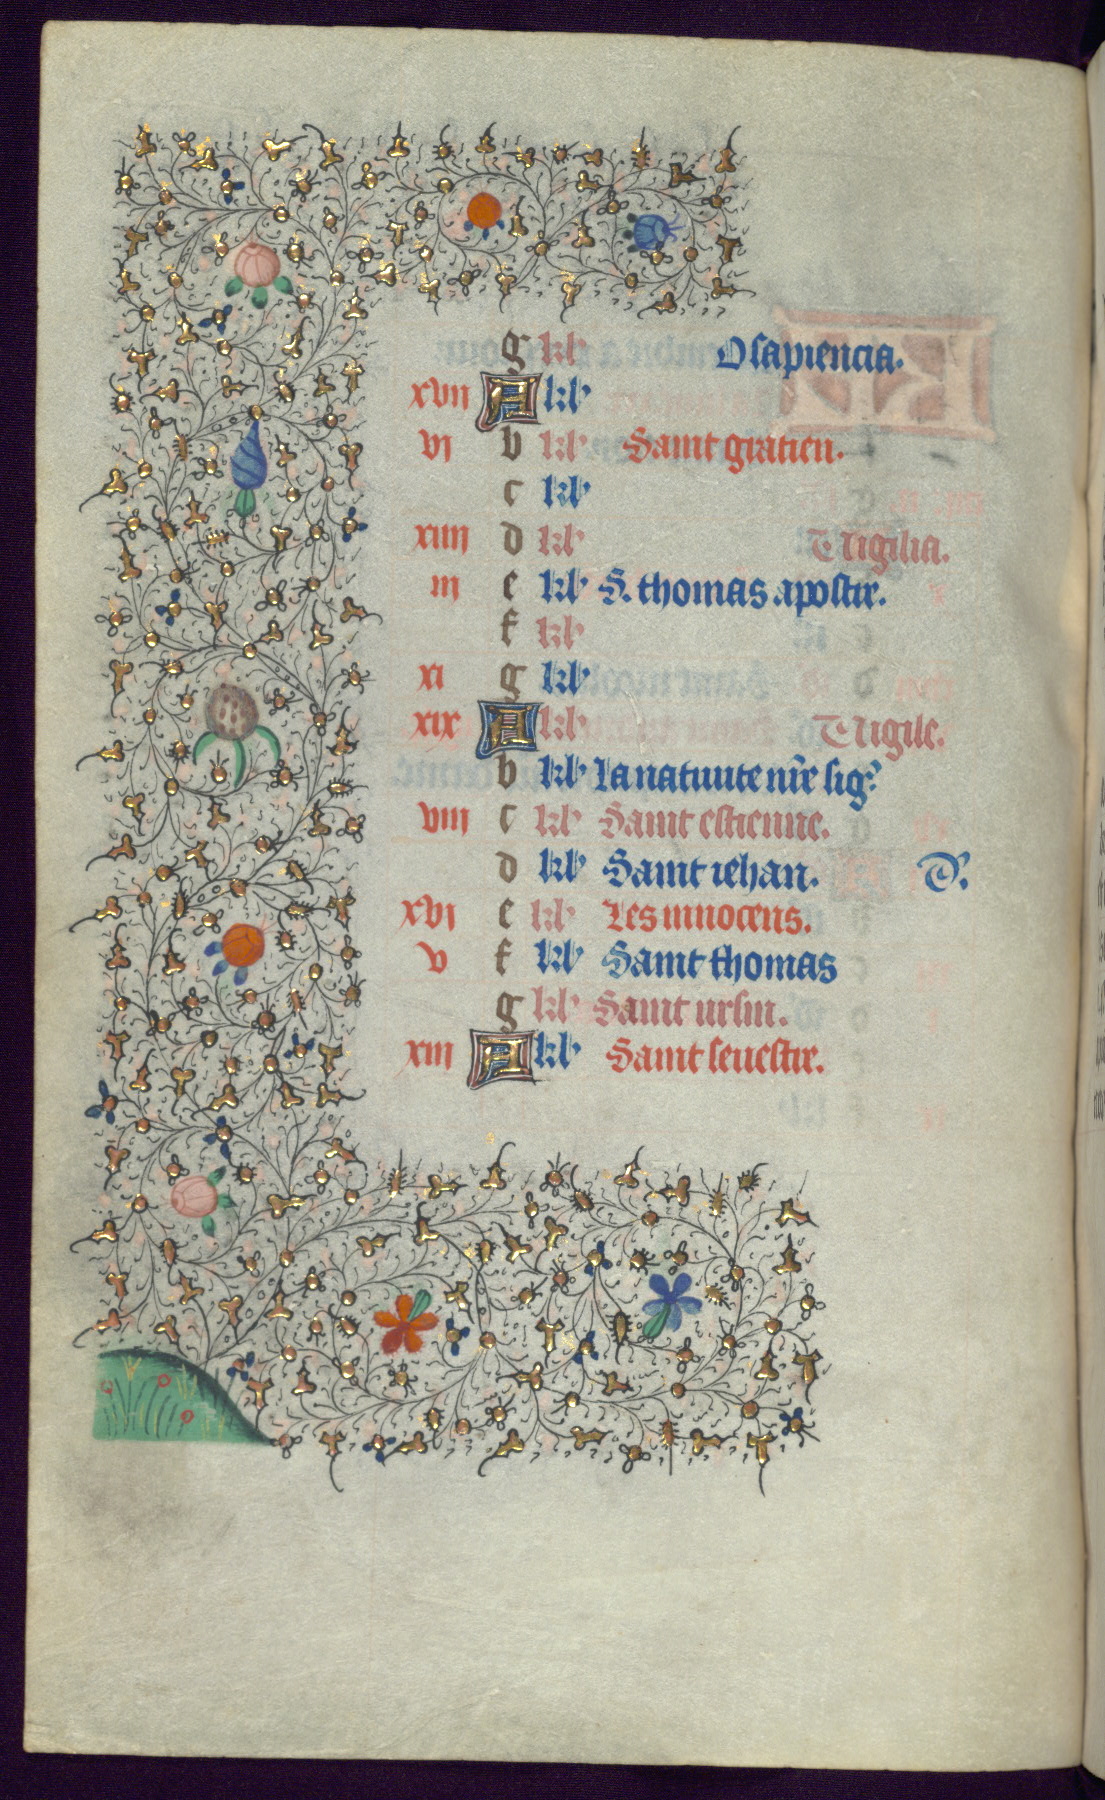 g kl' O sapiencia.
xvii A kl'
vi b kl' Saint gratien.
c kl'
xiiii d kl' Vigilia.
iii e kl' S. thomas apostre.
f kl'
xi g kl'
xix A kl' Vigile.
b kl' la natiuite nr̄e sig.ᵒ
viii c kl' Saint estienne.
d kl' Saint iehan. D'.
xvi e kl' Les innocens.
v f kl' Saint thomas
g kl' Saint ursin.
xiii A kl' Saint seuestre.